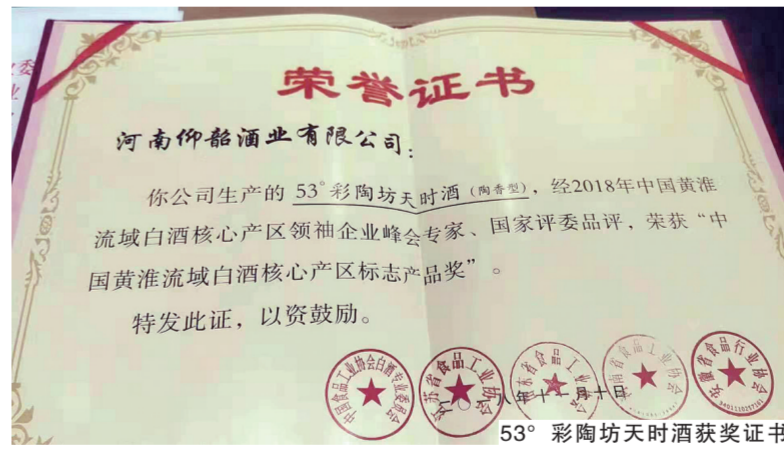 荣誉证书
河南仰韶酒业有限公司：
你公司生产的 53°彩陶坊天时酒（陶香型），经2018年中国黄淮
流域白酒核心产区领袖企业峰会专家、国家评委品评，荣获“中
国黄淮流域白酒核心产区标志产品奖”。
特发此证，以资鼓励。
中国食品工业协会白酒专业委员会
江苏省食品工业协会
山东省食品工业协会
河南省食品工业协会
安徽省食品行业协会
八年十一月十日
53°彩陶坊天时酒获奖证书